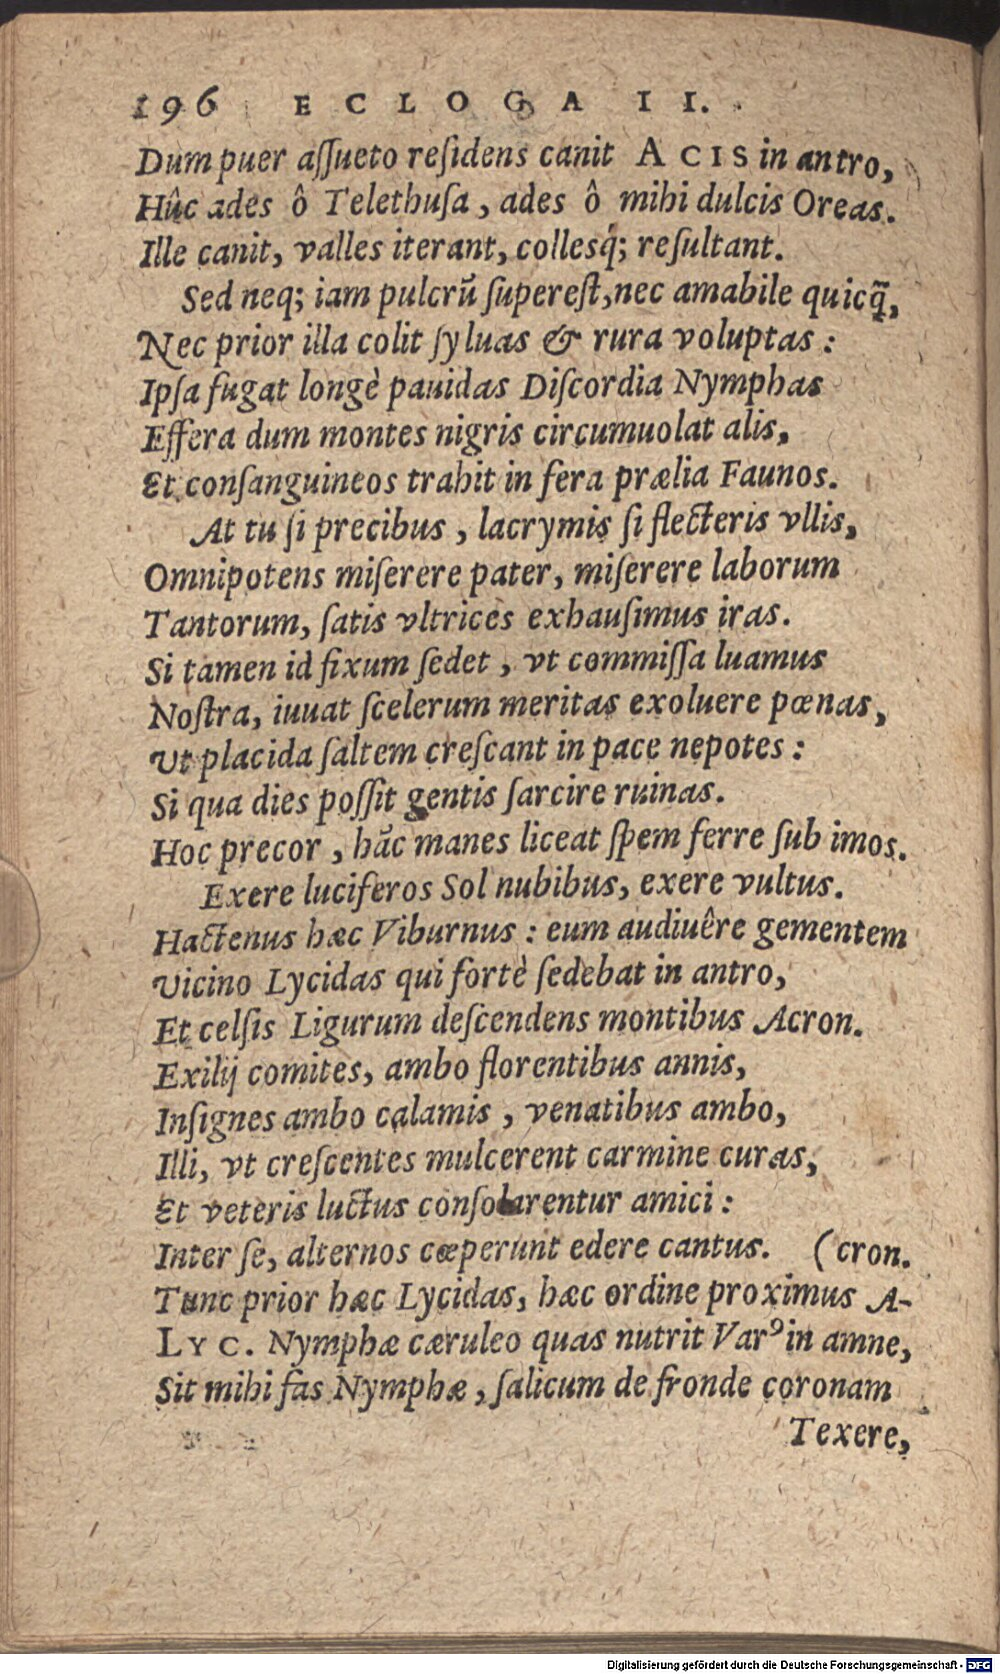 196 ECLOGA II.
Dum puer aſſueto reſidens canit ACIS in antro,
Hûc ades ô Telethuſa, ades ô mihi dulcis Oreas.
Ille canit, valles iterant, collesq́; reſultant.
Sed neq; iam pulcrũ ſupereſt, nec amabile quicq̃,
Nec prior illa colit ſyluas & rura voluptas:
Ipſa fugat longè pauidas Diſcordia Nymphas
Effera dum montes nigris circumuolat alis,
Et conſanguineos trahit in fera prælia Faunos.
At tu ſi precibus, lacrymis ſi flecteris vllis,
Omnipotens miſerere pater, miſerere laborum
Tantorum, ſatis vltrices exhauſimus iras.
Si tamen id fixum ſedet, vt commiſſa luamus
Noſtra, iuuat ſcelerum meritas exoluere pœnas,
Vt placida ſaltem creſcant in pace nepotes:
Si qua dies poſſit gentis ſarcire ruinas.
Hoc precor, hãc manes liceat ſpem ferre ſub imos.
Exere luciferos Sol nubibus, exere vultus.
Hactenus hæc Viburnus: eum audiuêre gementem
Vicino Lycidas qui fortè ſedebat in antro,
Et celſis Ligurum deſcendens montibus Acron.
Exilij comites, ambo florentibus annis,
Inſignes ambo calamis, venatibus ambo,
Illi, vt creſcentes mulcerent carmine curas,
Et veteris luctus conſolarentur amici:
Inter ſe, alternos cœperunt edere cantus. (cron.
Tunc prior hæc Lycidas, hæc ordine proximus A-
LYC. Nymphæ cæruleo quas nutrit Varꝰ in amne,
Sit mihi fas Nymphæ, ſalicum de fronde coronam
Texere,
Digitalisierung gefördert durch die Deutsche Forschungsgemeinschaft - DFG